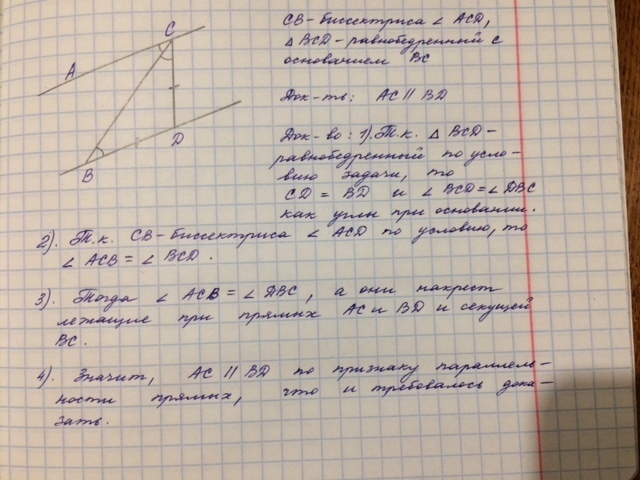 A
C
B
D
CB - биссектриса ∠ ACD,
△ BCD - равнобедренный с
основанием BC
Док-ть: AC || BD
Док-во: 1). Т.к. △ BCD -
равнобедренный по усло-
вию задачи, то
CD = BD и ∠ BCD = ∠ DBC
как углы при основании.
2). Т.к. CB - биссектриса ∠ ACD по условию, то
∠ ACB = ∠ BCD.
3). Тогда ∠ ACB = ∠ DBC, а они накрест
лежащие при прямых AC и BD и секущей
BC.
4). Значит, AC || BD по признаку параллель-
ности прямых, что и требовалось дока-
зать.